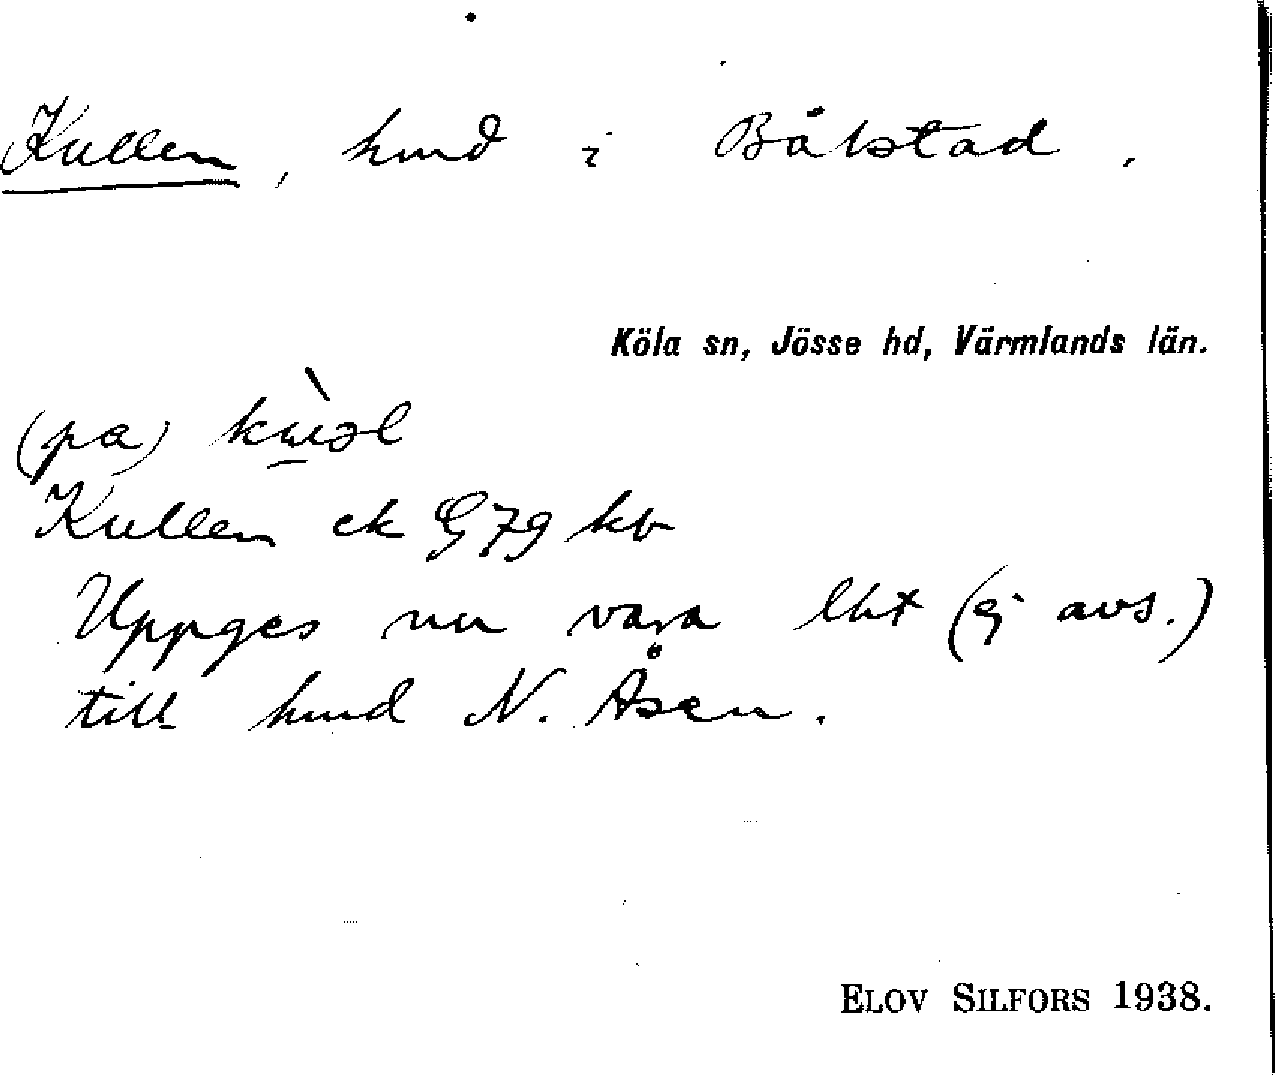 Kullen, hmd i Bålstad.
Köla sn, Jösse hd, Värmlands län.
(pa)
Kullen ek G79 kb
Uppges nu vara lht (ej avs.)
till hmd N. Åsen.
ELOV SILFORS 1938.